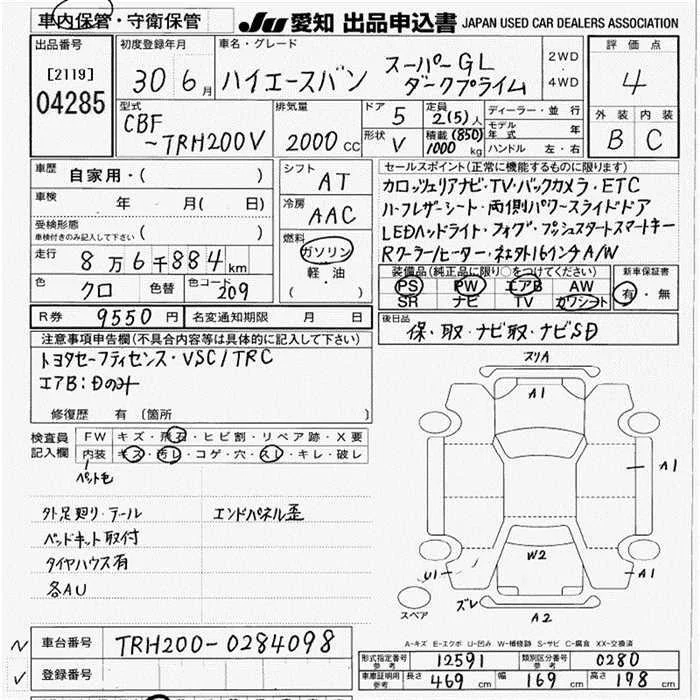 車内保管・守衛保管
JU 愛知 出品申込書 JAPAN USED CAR DEALERS ASSOCIATION
出品番号 [2119] 04285
初度登録年月 30 6月
車名・グレード ハイエースバン スーパーGL ダークプライム
2WD・4WD
評価点 4
外装 B 内装 C
型式 CBF〜TRH200V
排気量 2000 CC
ドア 5
形状 V
定員 2(5)人
積載 (850) 1000 kg
ディーラー・並行
モデル年式 年
ハンドル 左・右
車歴 自家用・( )
車検 年 月( 日)
受検形態 車検付きのみ記入して下さい ( )
走行 8万6千884km
色 クロ 色替 色コード 209
シフト AT
冷房 AAC
燃料 ガソリン・軽油 ( )
R券 9550円 名変通知期限 月 日
セールスポイント(正常に機能するものに限ります)
カロッツェリアナビ・TV・バックカメラ・ETC
ハーフレザーシート・両側パワースライドドア
LEDヘッドライト・フォグ・プッシュスタートスマートキー
Rクーラー/ヒーター・ネェクト16インチA/W
装備品(純正品に限り○をつけてください)
PS・PW・エアB・AW
SR ナビ TV カワシート
新車保証書 有・無
後日品 保・取・ナビ取・ナビSD
注意事項申告欄(不具合内容等は具体的に記入して下さい)
トヨタセーフティセンス・VSC/TRC
エアB:Dのみ
修復歴 有〔箇所 〕
検査員記入欄
FW キズ・飛石・ヒビ割・リペア跡・X要
内装 キズ・汚レ・コゲ・穴・スレ・キレ・破レ
ペット毛
外足廻り・テール
エンドパネル歪
ベッドキット取付
タイヤハウス有
各AU
スリA
A1
A1
W2
U1
A1
スペア
ズレ
A2
A-キズ E-エクボ U-凹み W-補修跡 S-サビ C-腐食 XX-交換済
車台番号 TRH200-0284098
登録番号
形式指定番号 参考 12591 類別区分番号 参考 0280
車庫証明用 参考 長さ 469 cm 幅 169 cm 高さ 198 cm